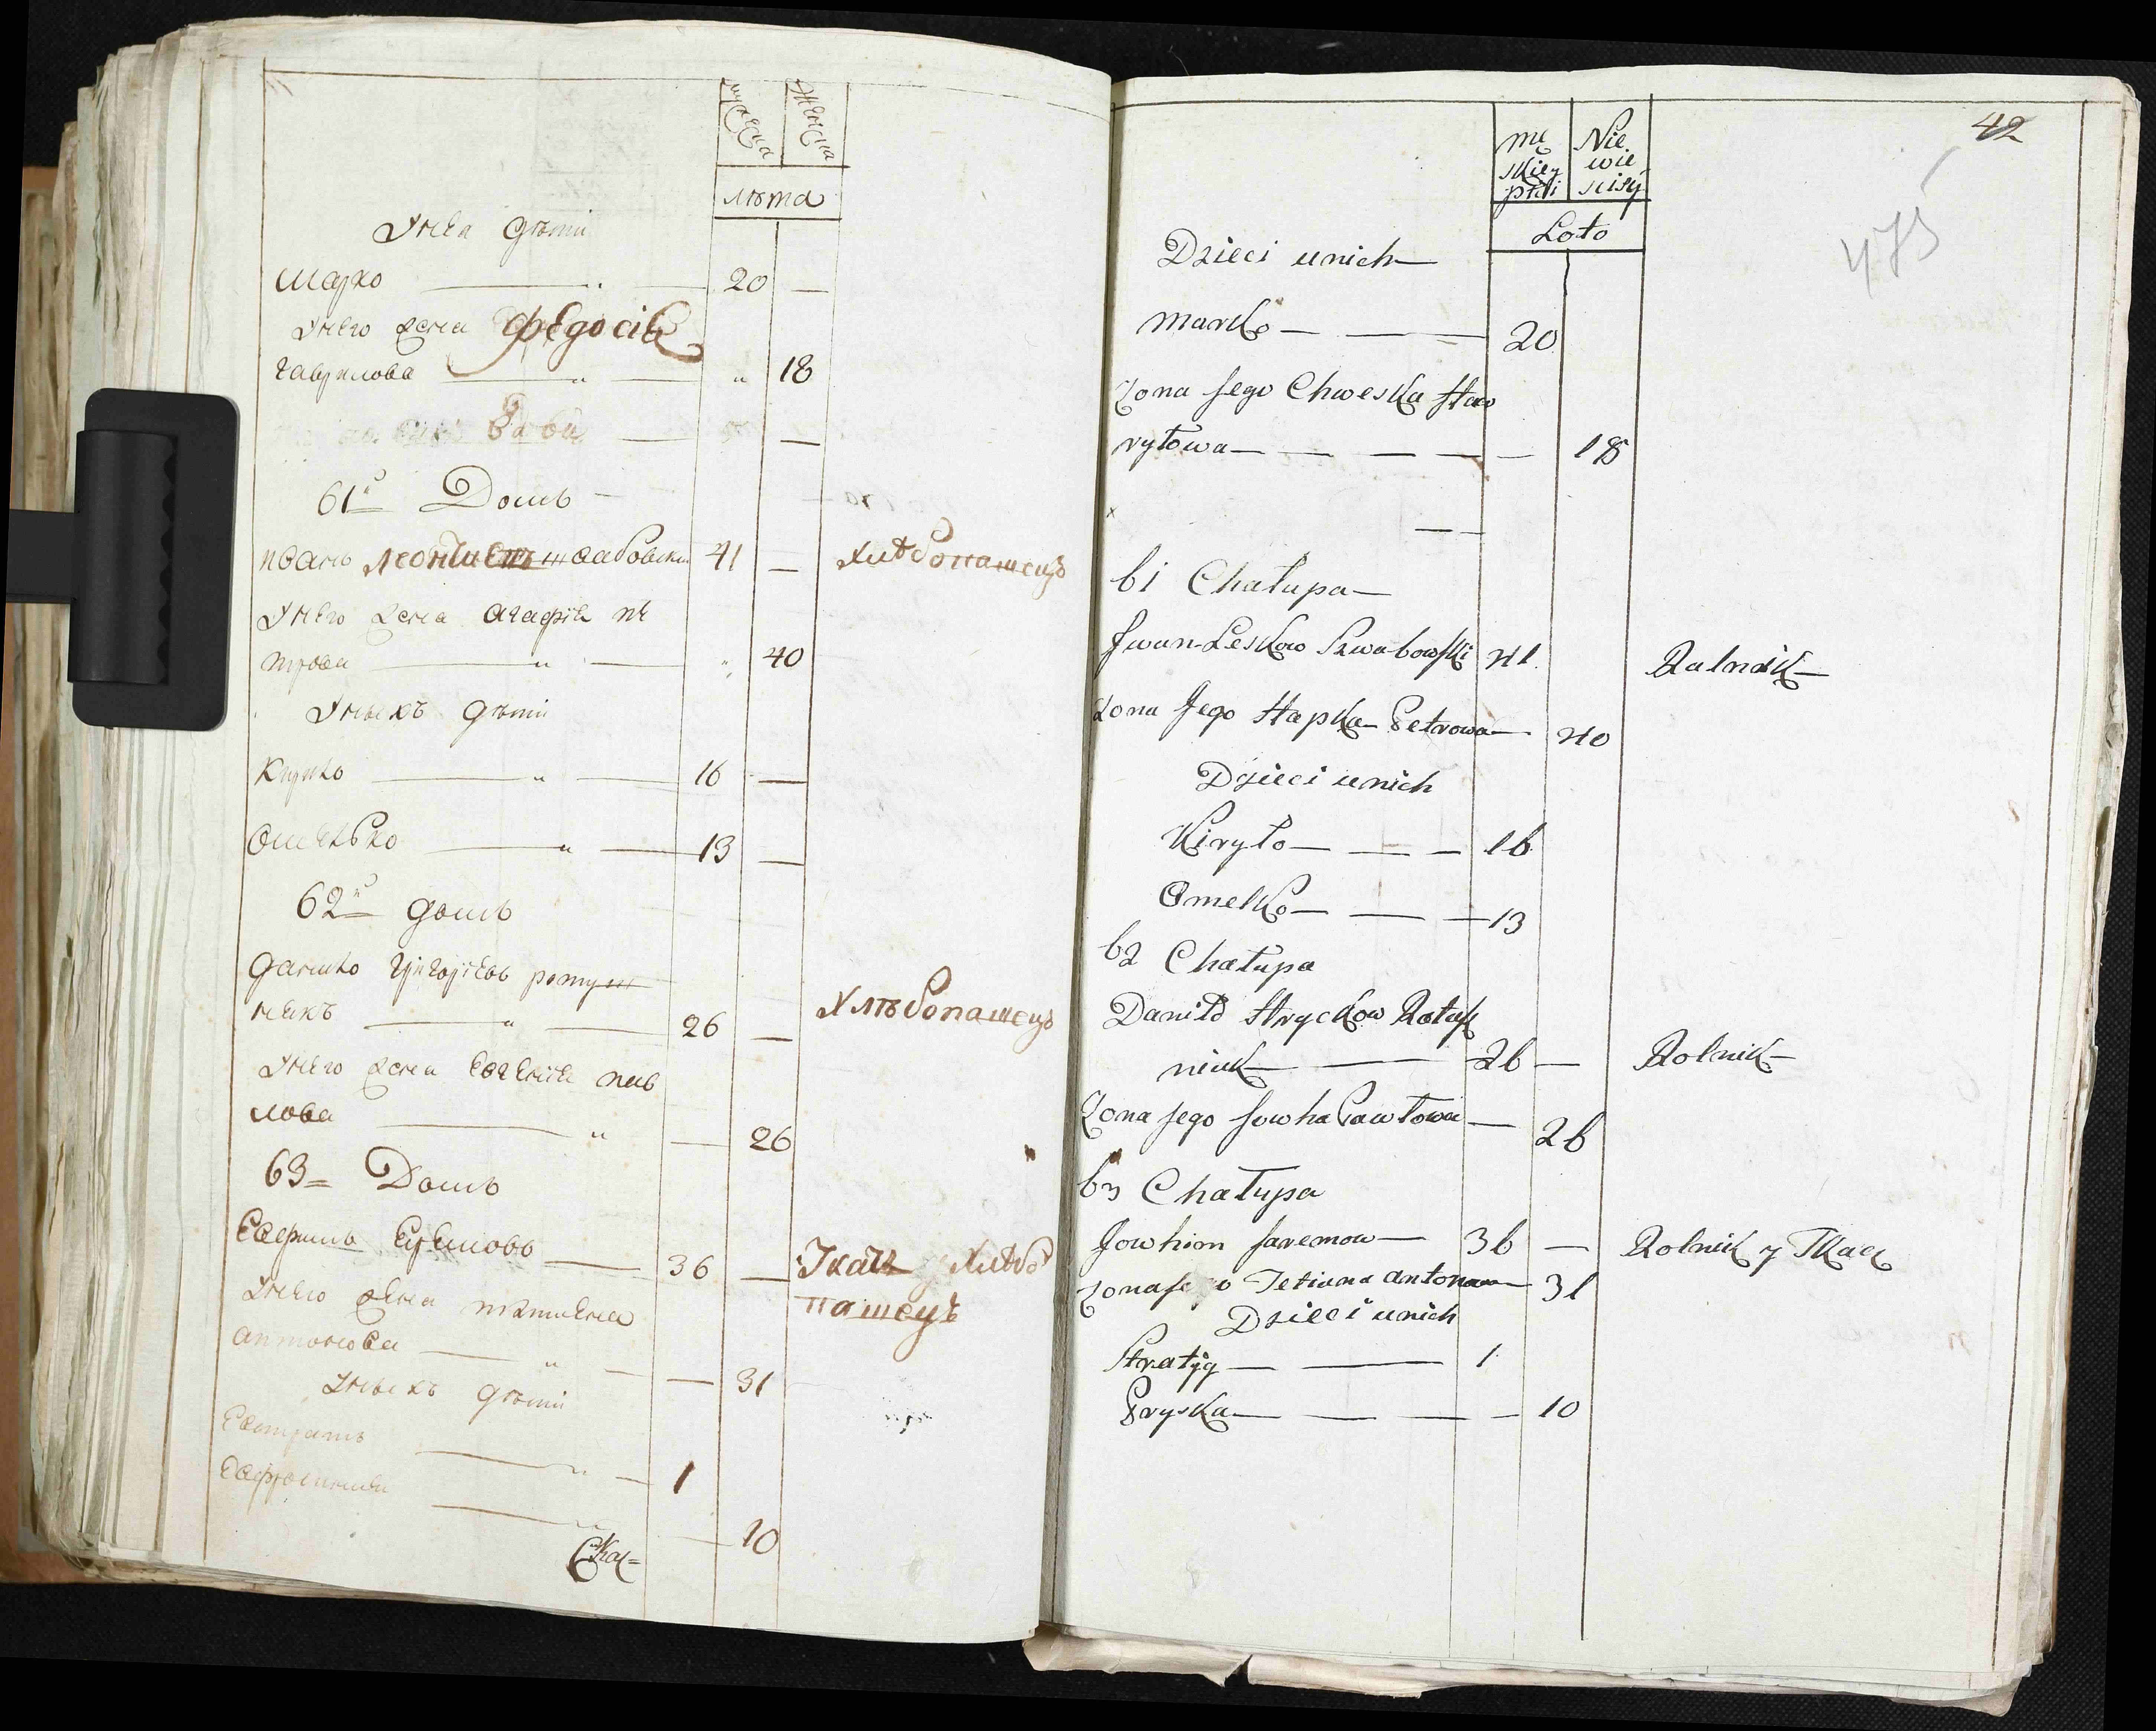 мужеска
женска
лѣта
У нея дѣти
Марко — „ — 20 —
У него жена Федосія
гаврилова — „ — „ 18
61й Домъ
иванъ леонтиевъ швабовски 41 — хлѣбопашецъ
У него жена агафія пе
трова — „ — „ 40
У ныхъ дѣти
Кирило — „ — 16 —
Омелько — „ — 13 —
62й домъ
данило григоріевъ ротуш
някъ — „ — 26 — Хлѣбопашецъ
У него жена евгенія пав
лова — „ — 26
63 Домъ
Евфимъ Еремовъ — 36 — Ткачъ и Хлѣбо
пашецъ
У него жена татиена
антонова — „ — — 31
У ныхъ дѣти
Евстратъ — „ — 1
Евфросиния — „ — — 10
Ска=
42
475
mę
skiey
płci
Nie
wie
sciey
Loto
Dzieci unich —
Marko — — 20
Zona Jego Chweska Haw
ryłowa — — — — — 18
61 Chałupa —
Jwan Leskow Szwabowski 41. Rolnik —
Zona Jego Hapka Petrowa — 40
Dzieci unich
Kiryło — — — 16
Omelko — — — 13
62 Chałupa
Daniło Hryckow Rotusz
niuk — — 26 — Rolnik —
Zona Jego Jowha Pawłowa — 26
63 Chałupa
Jowhim Jaremow — 36 — Rolnik y Tkacz
Zona Jego Tetiana Antonowa — 31
Dzieci unich
Stratyj — — 1
Pryska — — — — 10